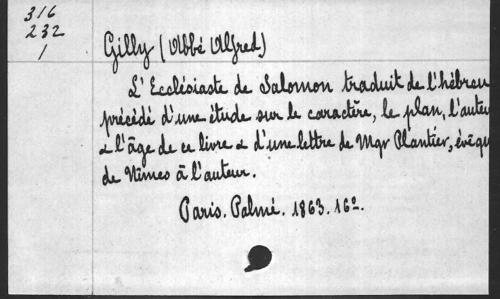 316
232
1
Gilly (Abbé Alfred)
L'Ecclésiaste de Salomon traduit de l'hébreu
précédé d'une étude sur le caractère, le plan, l'auteu
& l'âge de ce livre & d'une lettre de Mgr Plantier, évêqu
de Nîmes à l'auteur.
Paris. Palmé. 1863. 16º.